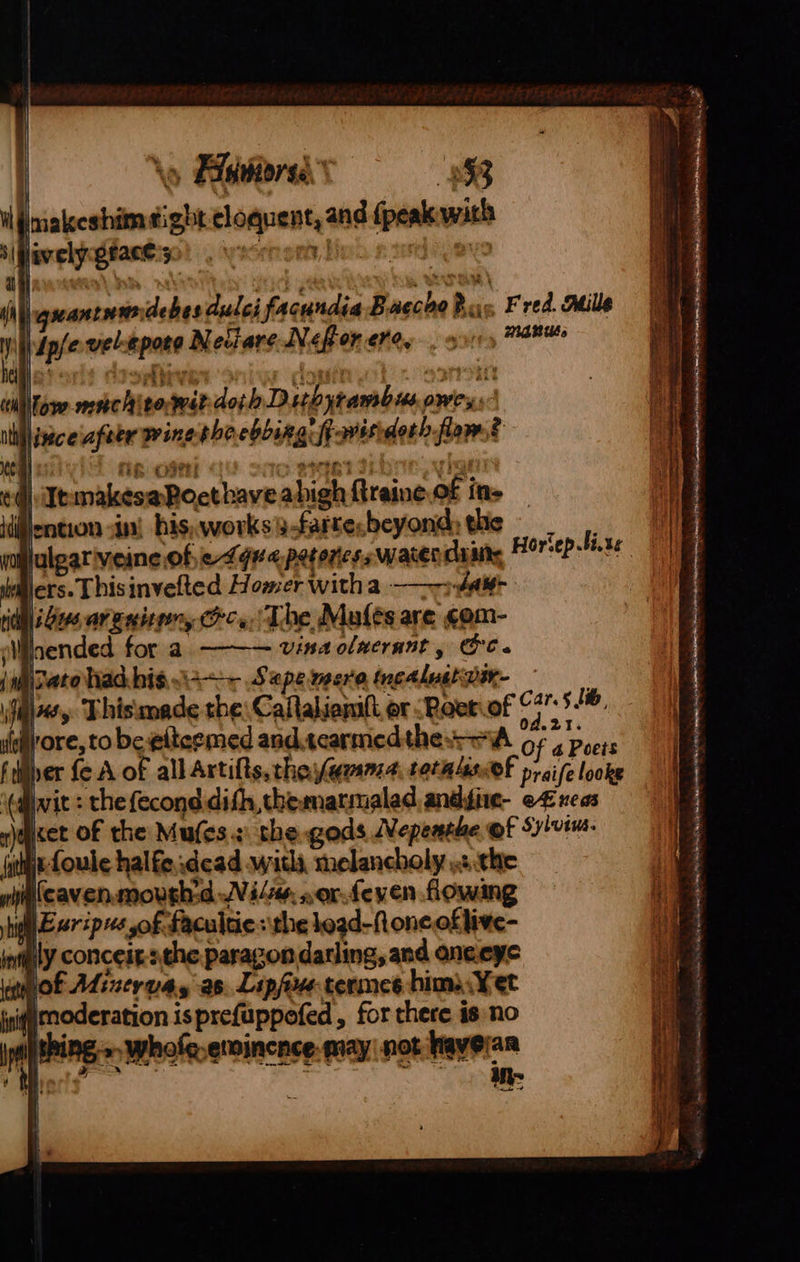 Humors. 53
makes him right eloquent, and ſpeak with
lively grace;
quantum debes dulci facundia Baccho
Ipſe vel epoto Nectare Neſtor ero. Fred. Mille manus.
How much to wit doth Dithyrambus owe,
ince after wine the ebbing'ſt wit doth flow?
It makes a Poet have a high ſtraine of in-
vention in his works, farre beyond the
vulgar veine of Aqua potores, water drin-
kers. This inveſted Homer with a ——— lau- Hor: ep. li. 1
dibus arguitur, &c. The Muſes are com-
mended for a ——— vina oluerunt, &c.
Cato had his ——— Sæpe mero incaluit vir-
tus, This made the Caſtalieniſt or Poet of Car. 5. lib. od. 21.
yore, to be eſteemed and tearmed the —A
per ſe A of all Artiſts, the ſumma totalis of Of a Poets praiſe looke
wit: the ſecond diſh, the marmalad and ſuc- Æneas
ket of the Muſes: the gods Nepenthe of Sylvius.
a ſoule halfe dead with melancholy: the
ſeaven mouth'd Nilus, or ſeven flowing
Euripus of facultie: the load-ſtone of live-
ly conceit: the paragon darling, and one eye
of Minerva, as Lipſius termes him. Yet
moderation is preſuppoſed, for there is no
thing whoſe eminence may not have an
in-